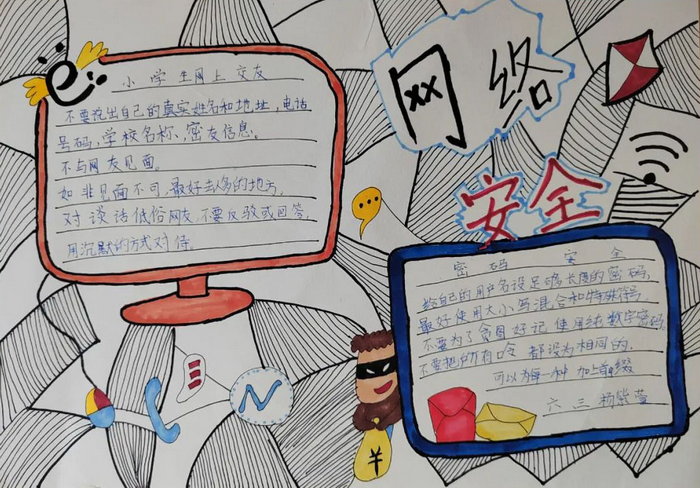 网络
安全
小学生网上交友
不要说出自己的真实姓名和地址，电话
号码，学校名称、密友信息。
不与网友见面。
如非见面不可，最好去人多的地方。
对谈话低俗网友，不要反驳或回答，
用沉默的方式对待。
密码安全
给自己的用户名设足够长度的密码，
最好使用大小写混合和特殊符号，
不要为了贪图好记使用纯数字密码。
不要把所有 都设为相同的，
可以为每一种加上前缀
六三 杨紫萱
¥